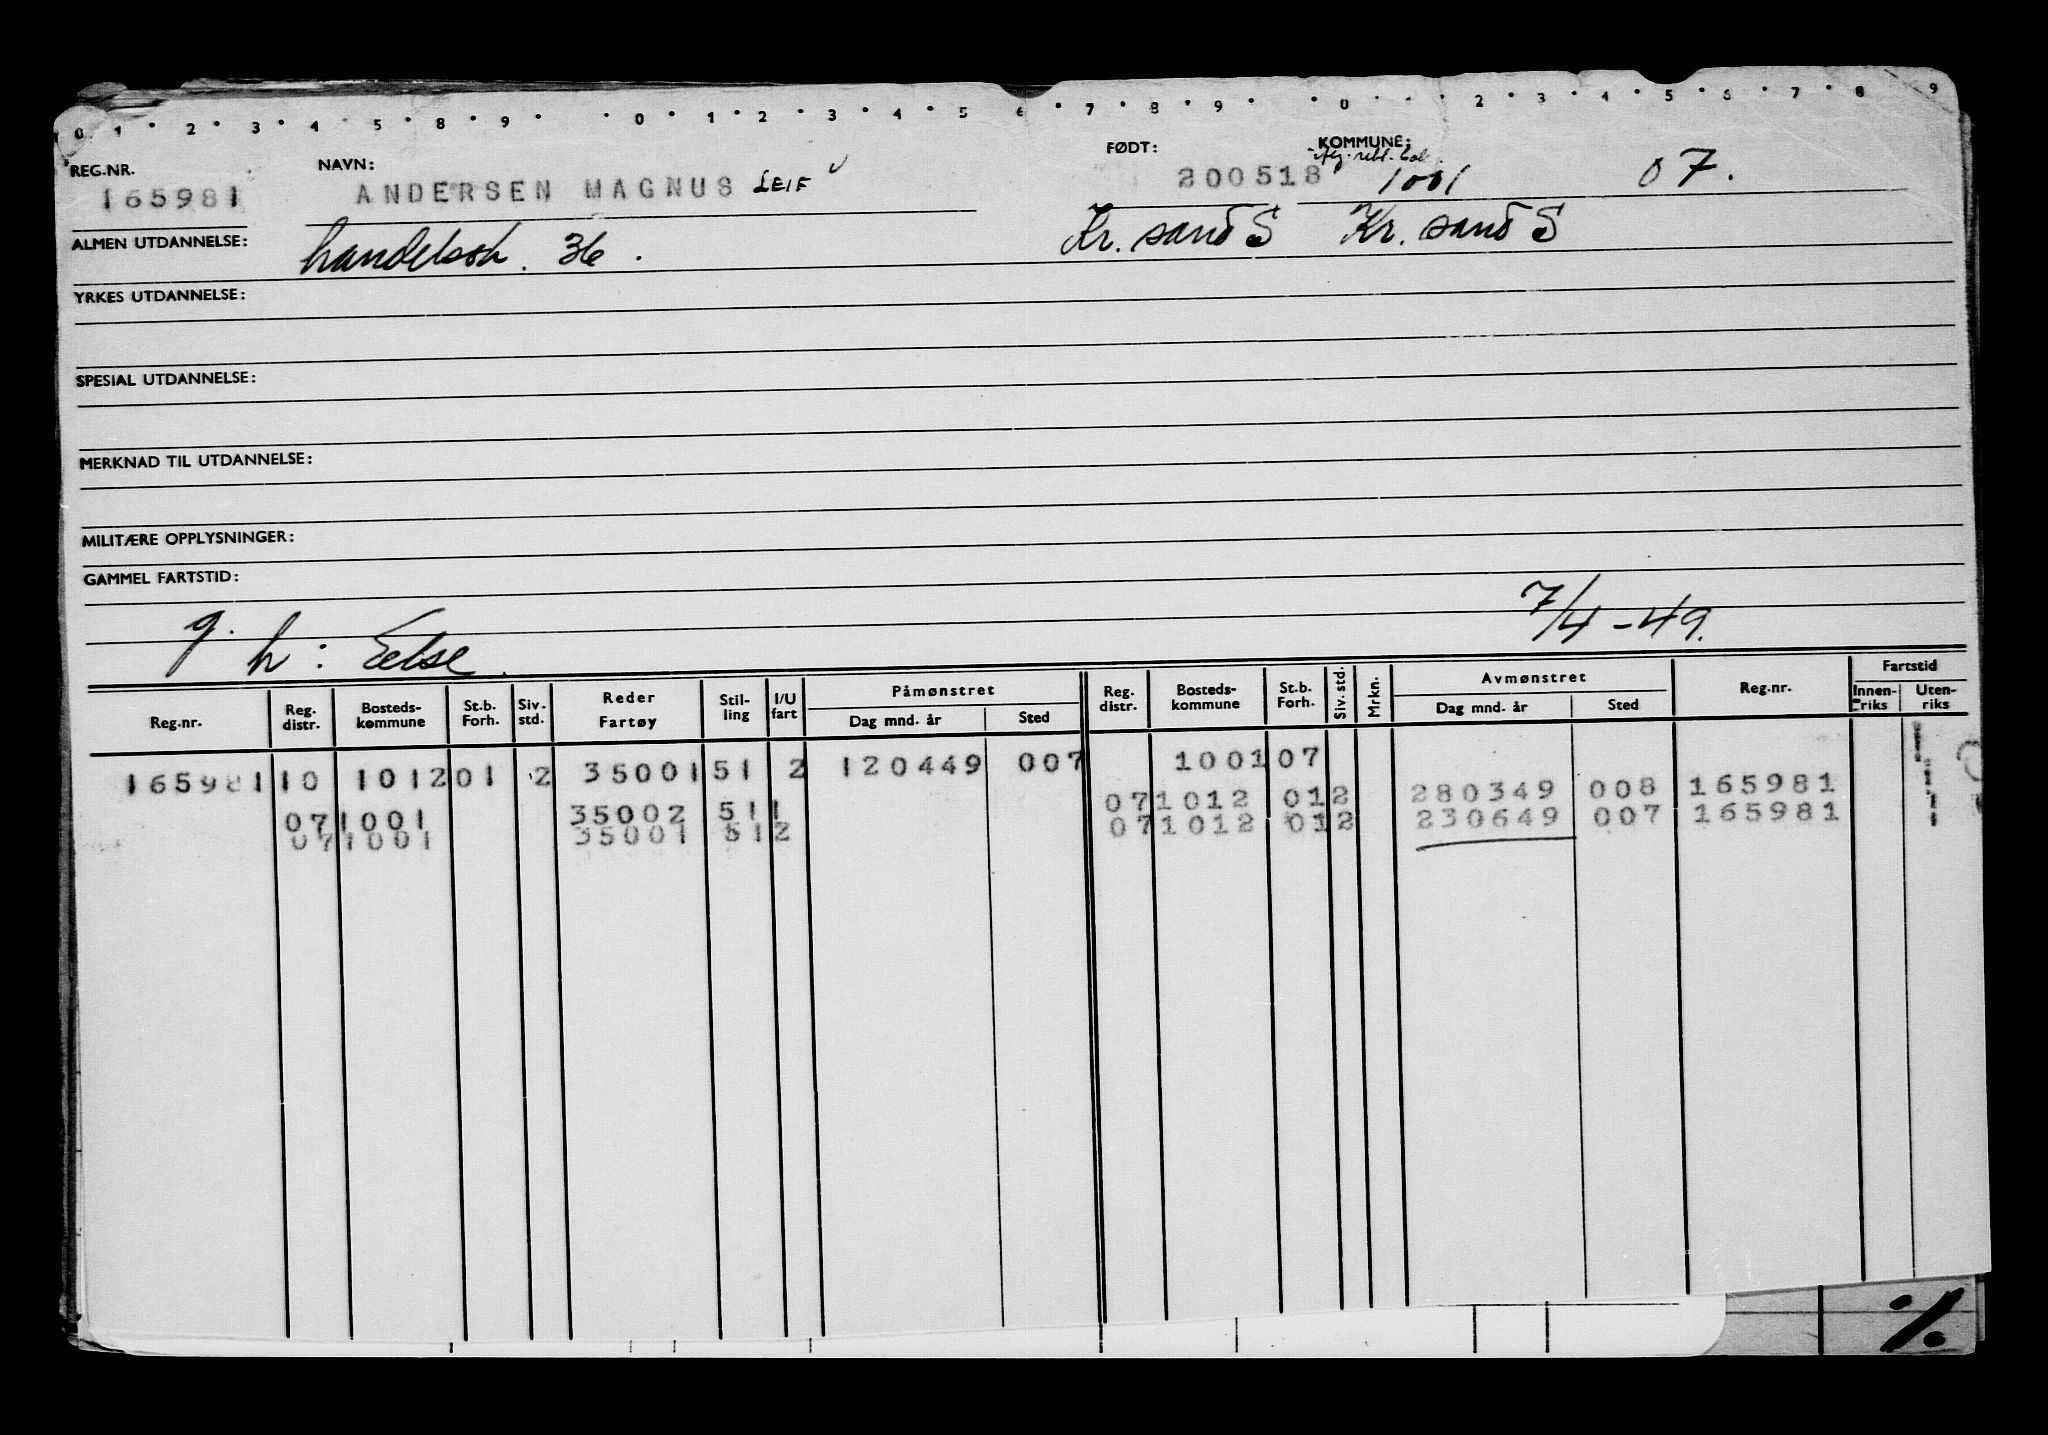 0 1 2 3 4 5 8 9 0 1 2 3 4 5 6 7 8 9 0 2 3 4 5 6 7 8 9
REG.NR. NAVN: FØDT: KOMMUNE:
165981 ANDERSEN MAGNUS LEIF 200518 1001 07.
ALMEN UTDANNELSE: handelssk. 36. Kr. sand S Kr. sand S
YRKES UTDANNELSE:
SPESIAL UTDANNELSE:
MERKNAD TIL UTDANNELSE:
MILITÆRE OPPLYSNINGER:
GAMMEL FARTSTID:
g. h: Eelse. 7/4-49.
Reg.nr. Reg. distr. Bosteds-kommune St.b. Forh. Siv. std. Reder Fartøy Stil-ling I/U fart Påmønstret Dag mnd. år Sted Reg. distr. Bosteds-kommune St.b. Forh. Siv. std. Mrkn. Avmønstret Dag mnd. år Sted Reg.nr. Fartstid Innen-riks Uten-riks
165981 10 1012 01 2 35001 51 2 120449 007 1001 07
07 1012 01 2 280349 008 165981
07 1001 35002 51 1 07 1012 01 2 230649 007 165981
07 1001 35001 51 2